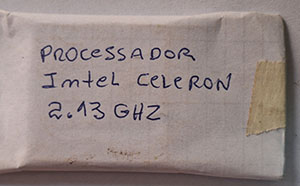 PROCESSADOR
Imtel CELERON
2.13 GHZ